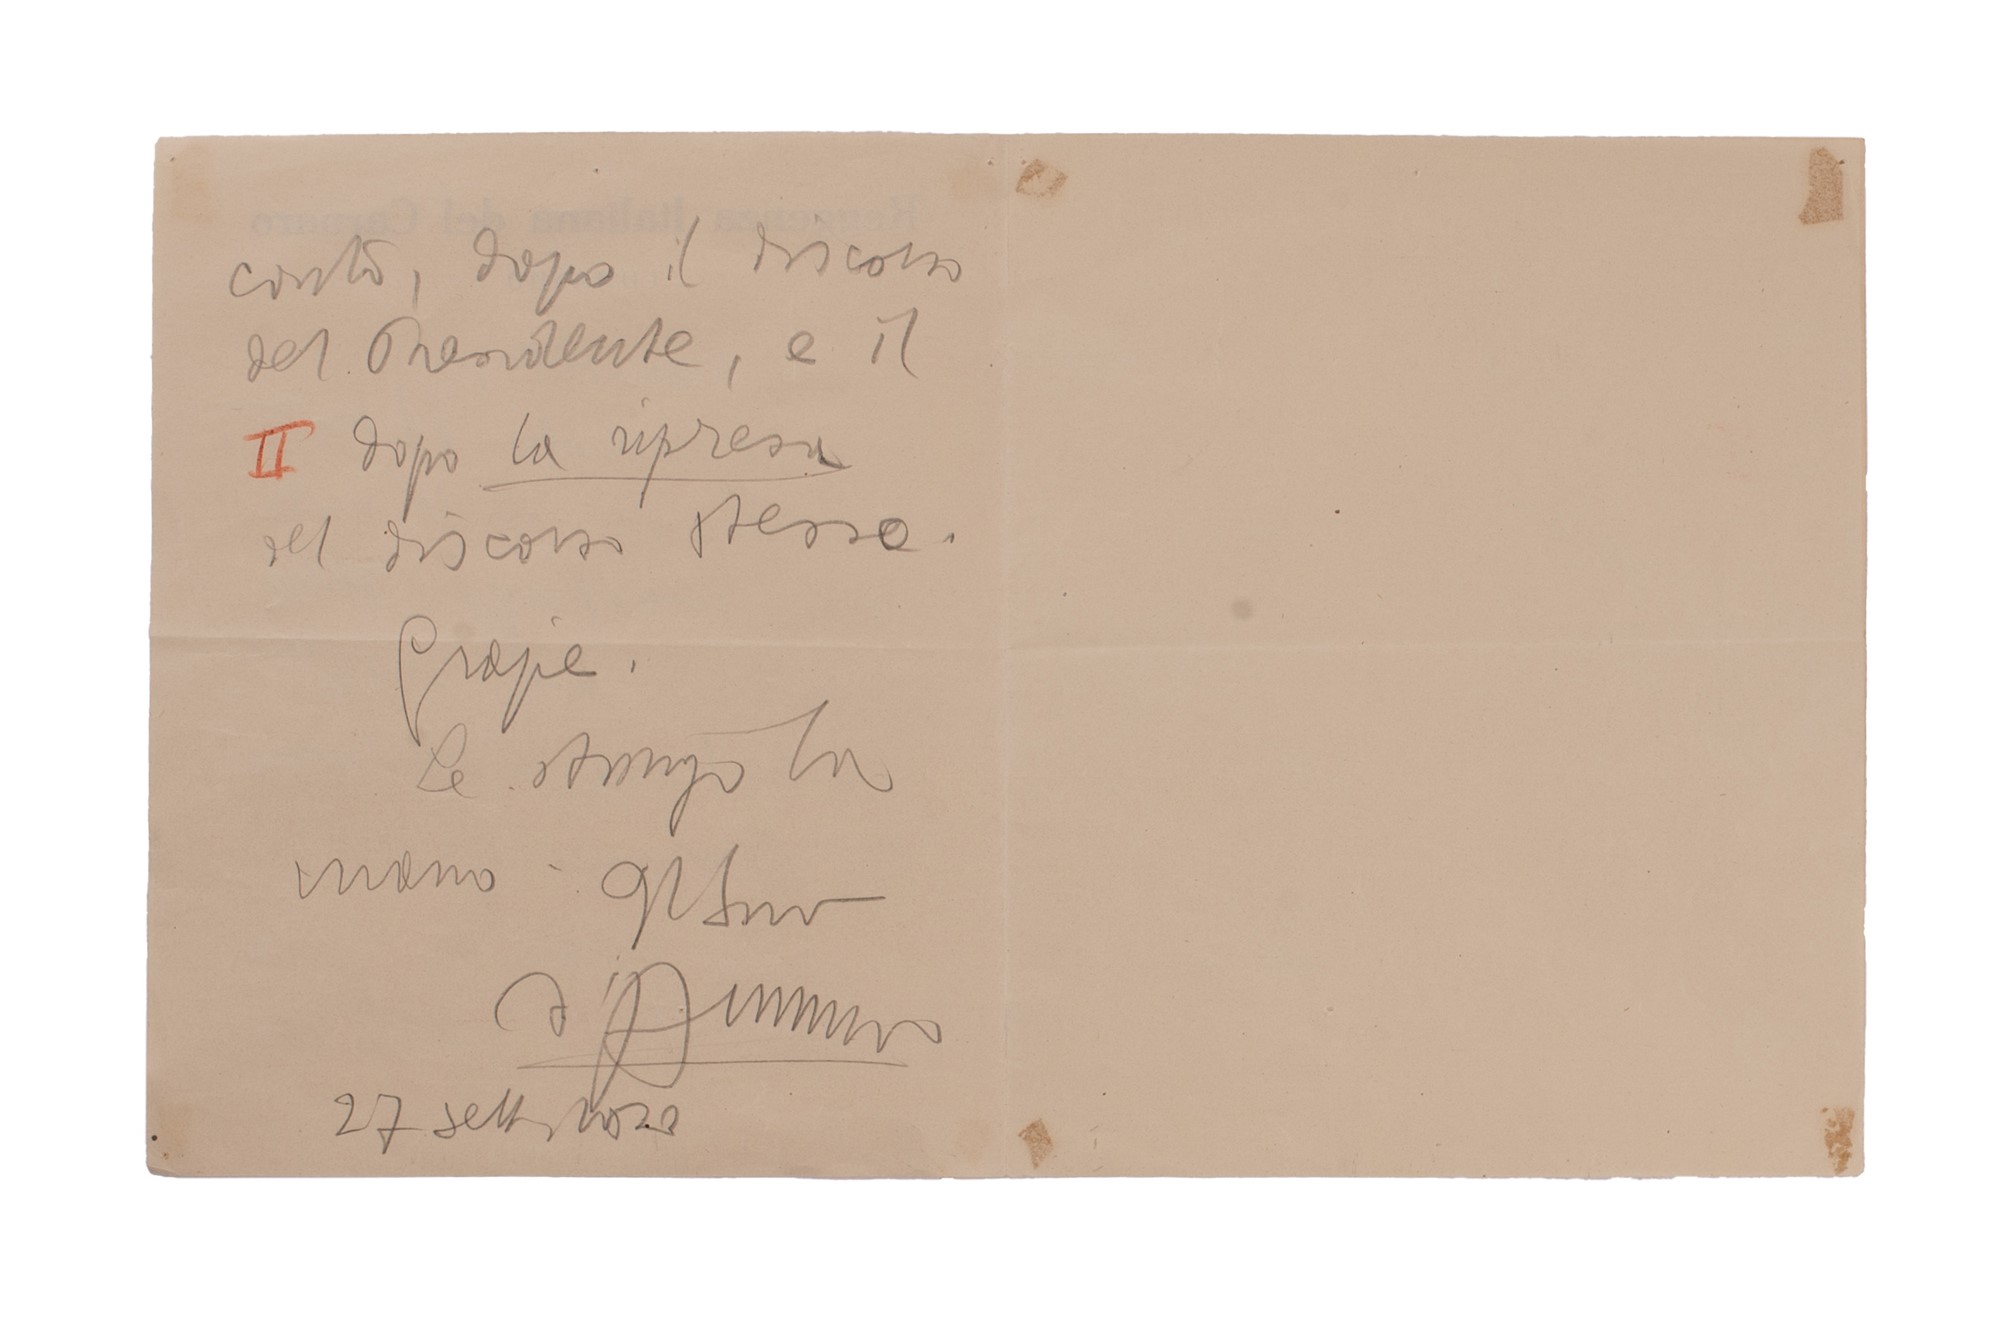 Reggenza Italiana del Carnaro
dopo il discorso
del Presidente, e il
II dopo la ripresa
del discorso stesso.
Grazie.
Le stringo la
mano.
27 sett. 1920